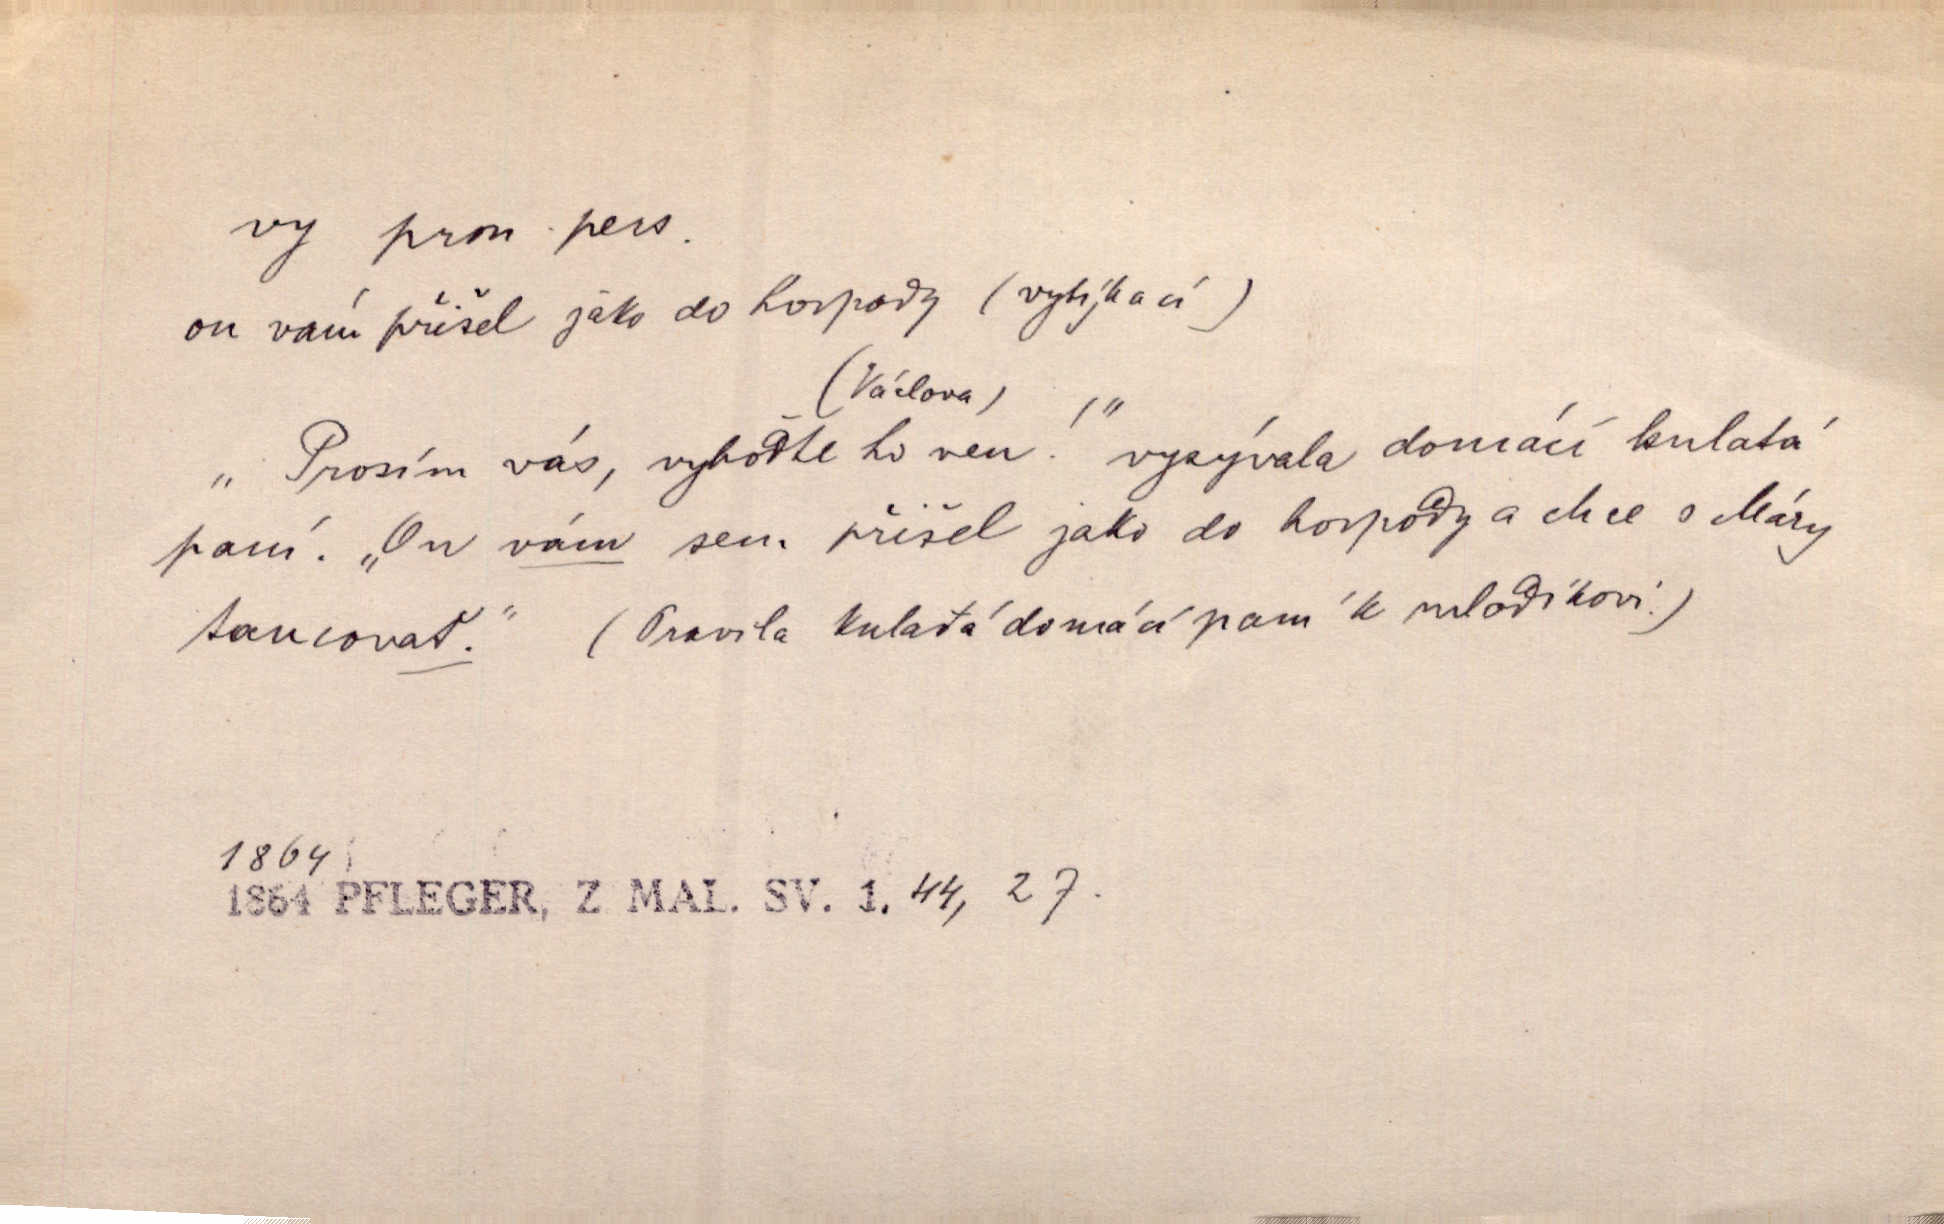 vy pron. pers.
on vám přišel jako do hospody (vytýkací)
(Václova)
„Prosím vás, vyhoďte ho ven!" vyzývala domácí kulatá
paní. „On vám sem přišel jako do hospody a chce s Máry
tancovat." (Pravila kulatá domácí paní k mladíkovi.)
1864
1864 PFLEGER, Z MAL. SV. 1. 44, 27.